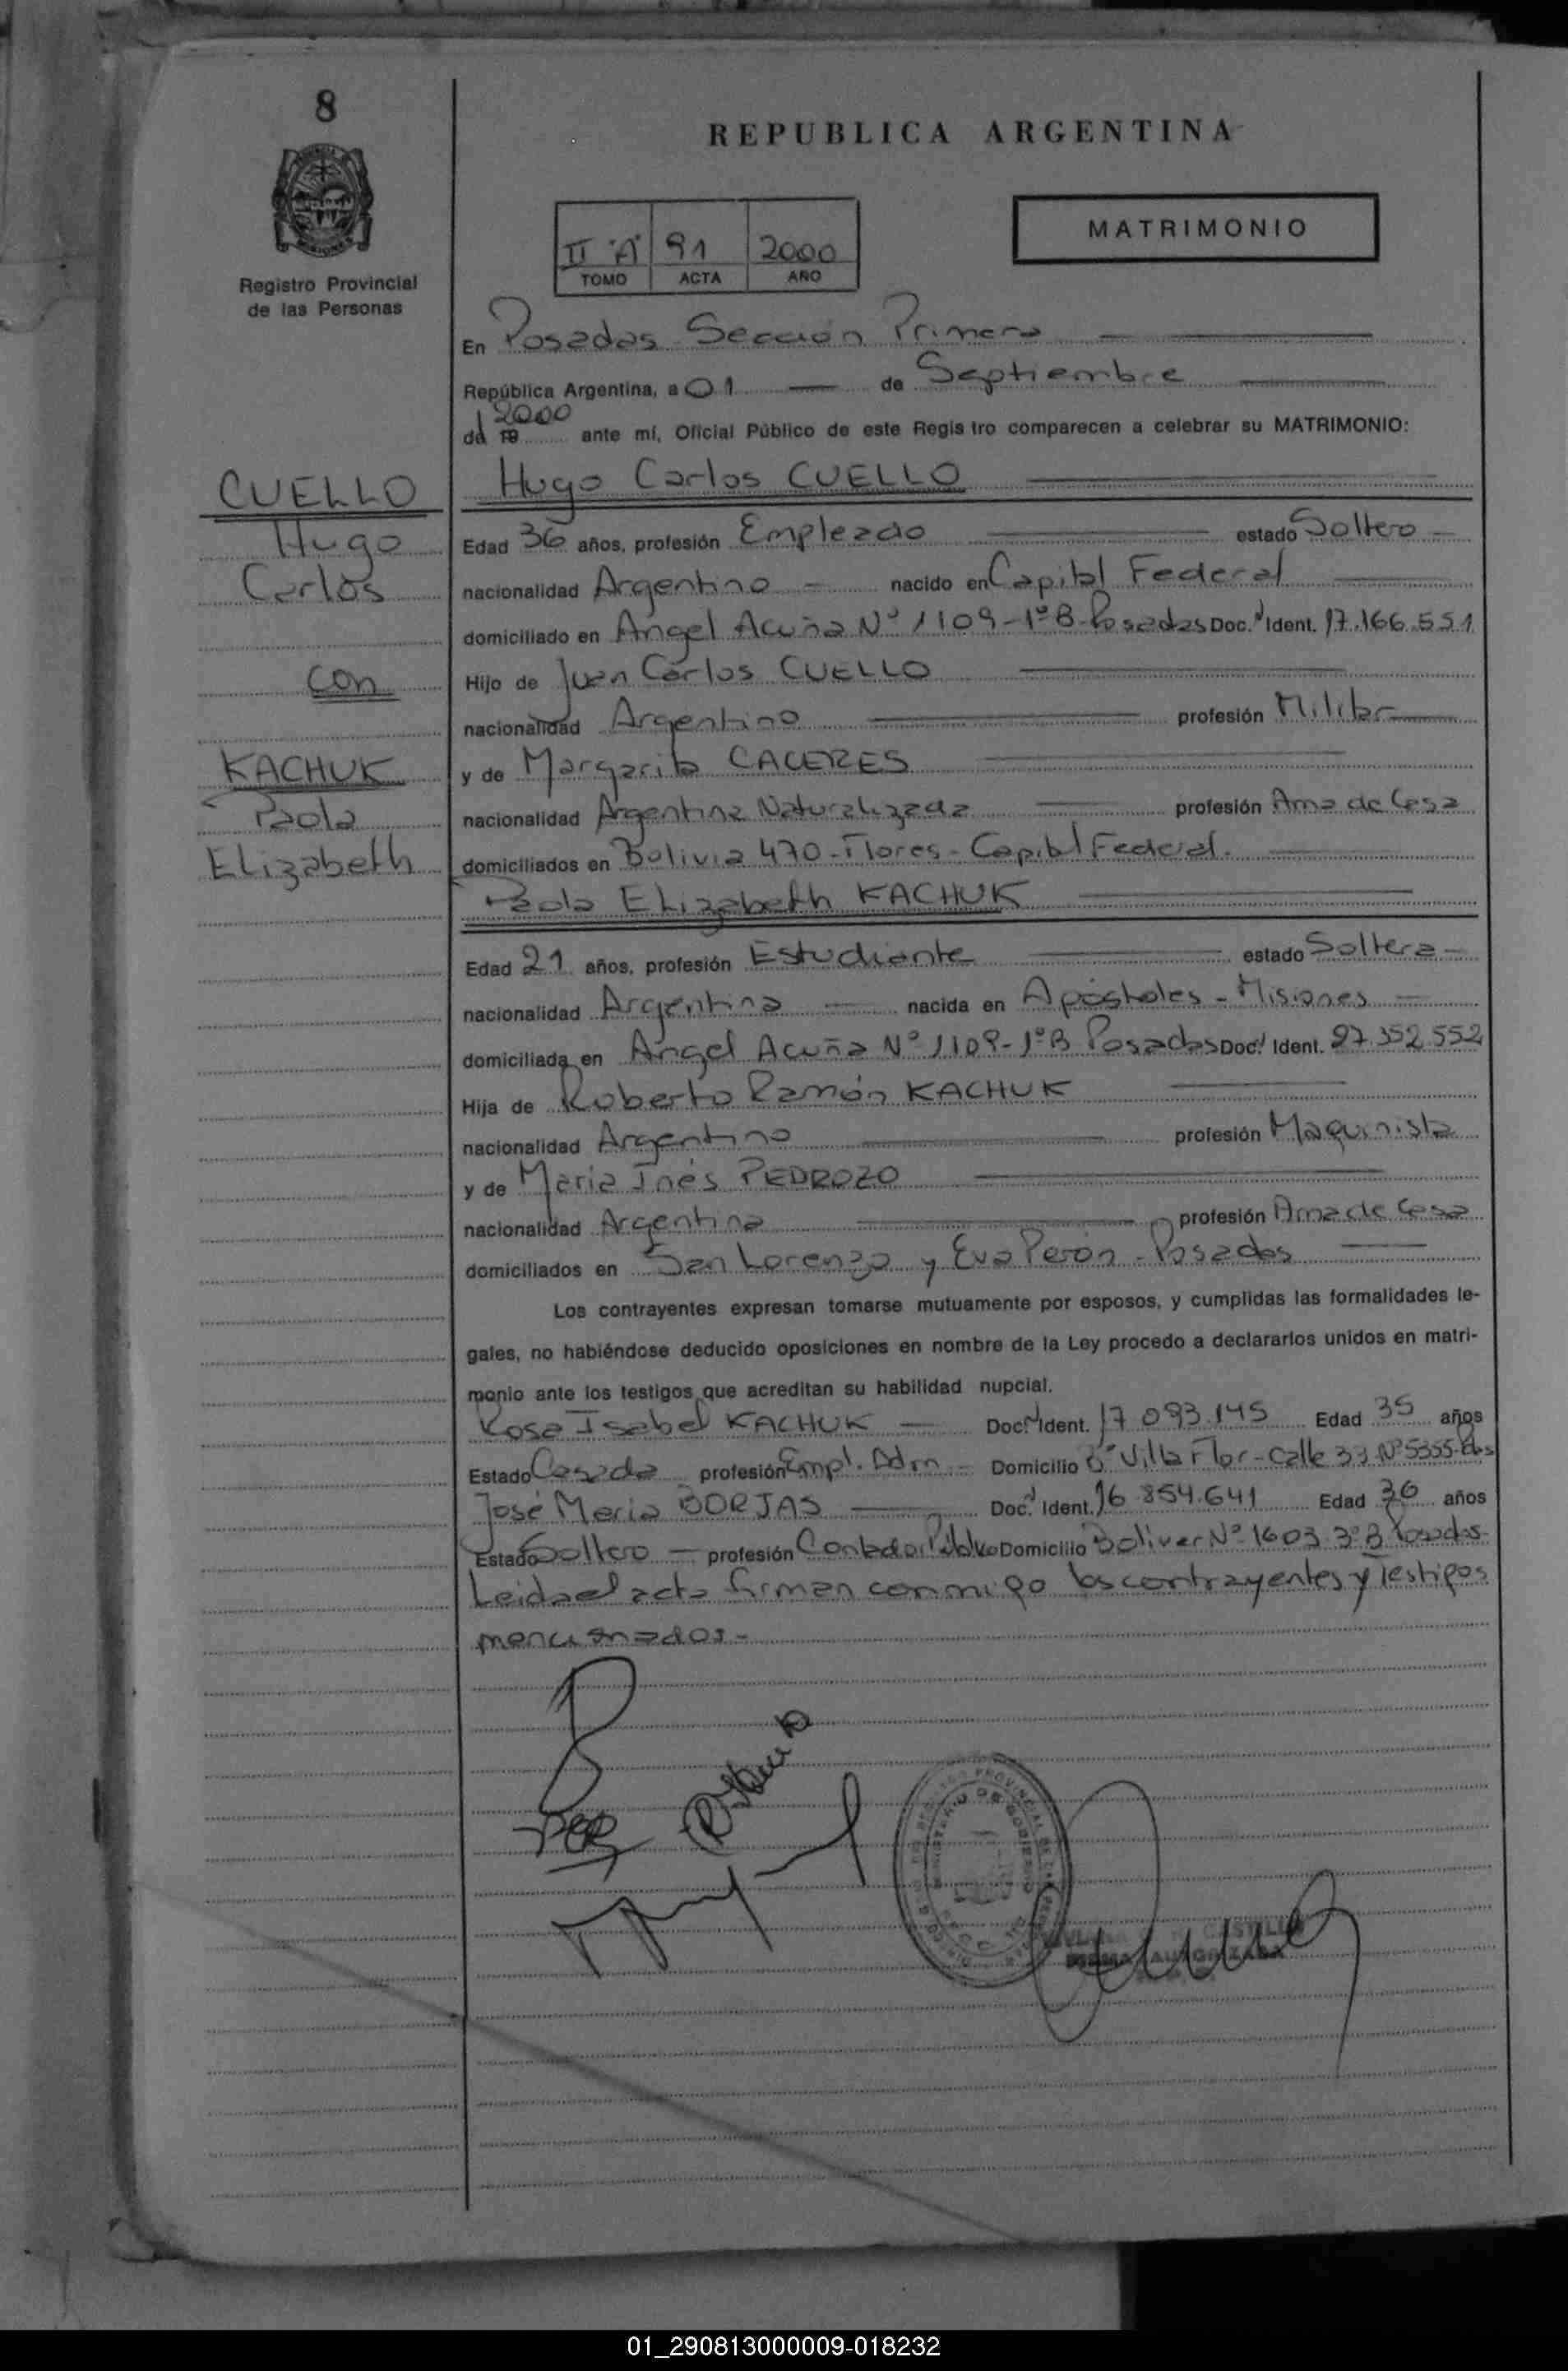 8
REPUBLICA ARGENTINA
Registro Provincial
de las Personas
II "A" 91 2000
TOMO ACTA AÑO
MATRIMONIO
En Posadas Sección Primera
República Argentina, a 01 de Septiembre
del 2000 ante mí, Oficial Público de este Regis tro comparecen a celebrar su MATRIMONIO:
CUELLO
Hugo
Carlos
con
KACHUK
Paola
Elizabeth
Hugo Carlos CUELLO
Edad 36 años, profesión Empleado estado Soltero
nacionalidad Argentino nacido en Capital Federal
domiciliado en Angel Acuña Nº 1109-1ºB-Posadas Doc. Ident. 17.166.551
Hijo de Juan Carlos CUELLO
nacionalidad Argentino profesión Militar
y de Margarita CACERES
nacionalidad Argentina Naturalizada profesión Ama de Casa
domiciliados en Bolivia 470-Flores-Capital Federal.
Paola Elizabeth KACHUK
Edad 21 años, profesión Estudiante estado Soltera
nacionalidad Argentina nacida en Apóstoles - Misiones
domiciliada en Angel Acuña Nº 1109-1ºB Posadas Doc. Ident. 27.352.552
Hija de Roberto Ramón KACHUK
nacionalidad Argentino profesión Maquinista
y de Maria Inés PEDROZO
nacionalidad Argentina profesión Ama de Casa
domiciliados en San Lorenzo y Eva Perón - Posadas
Los contrayentes expresan tomarse mutuamente por esposos, y cumplidas las formalidades le-
gales, no habiéndose deducido oposiciones en nombre de la Ley procedo a declararlos unidos en matri-
monio ante los testigos que acreditan su habilidad nupcial.
Rosa Isabel KACHUK Doc. Ident. 17.093.145 Edad 35 años
Estado Casada profesión Empl. Adm Domicilio Bº Villa Flor-Calle 33 Nº5355-Pdas
José Maria BORJAS Doc. Ident. 16.854.641 Edad 36 años
Estado Soltero profesión Contador Público Domicilio Bolivar Nº 1603 3ºB Posadas
Leida el acta firman conmigo los contrayentes y Testigos
mencionados-
FIRMA AUTORIZADA
01_290813000009-018232